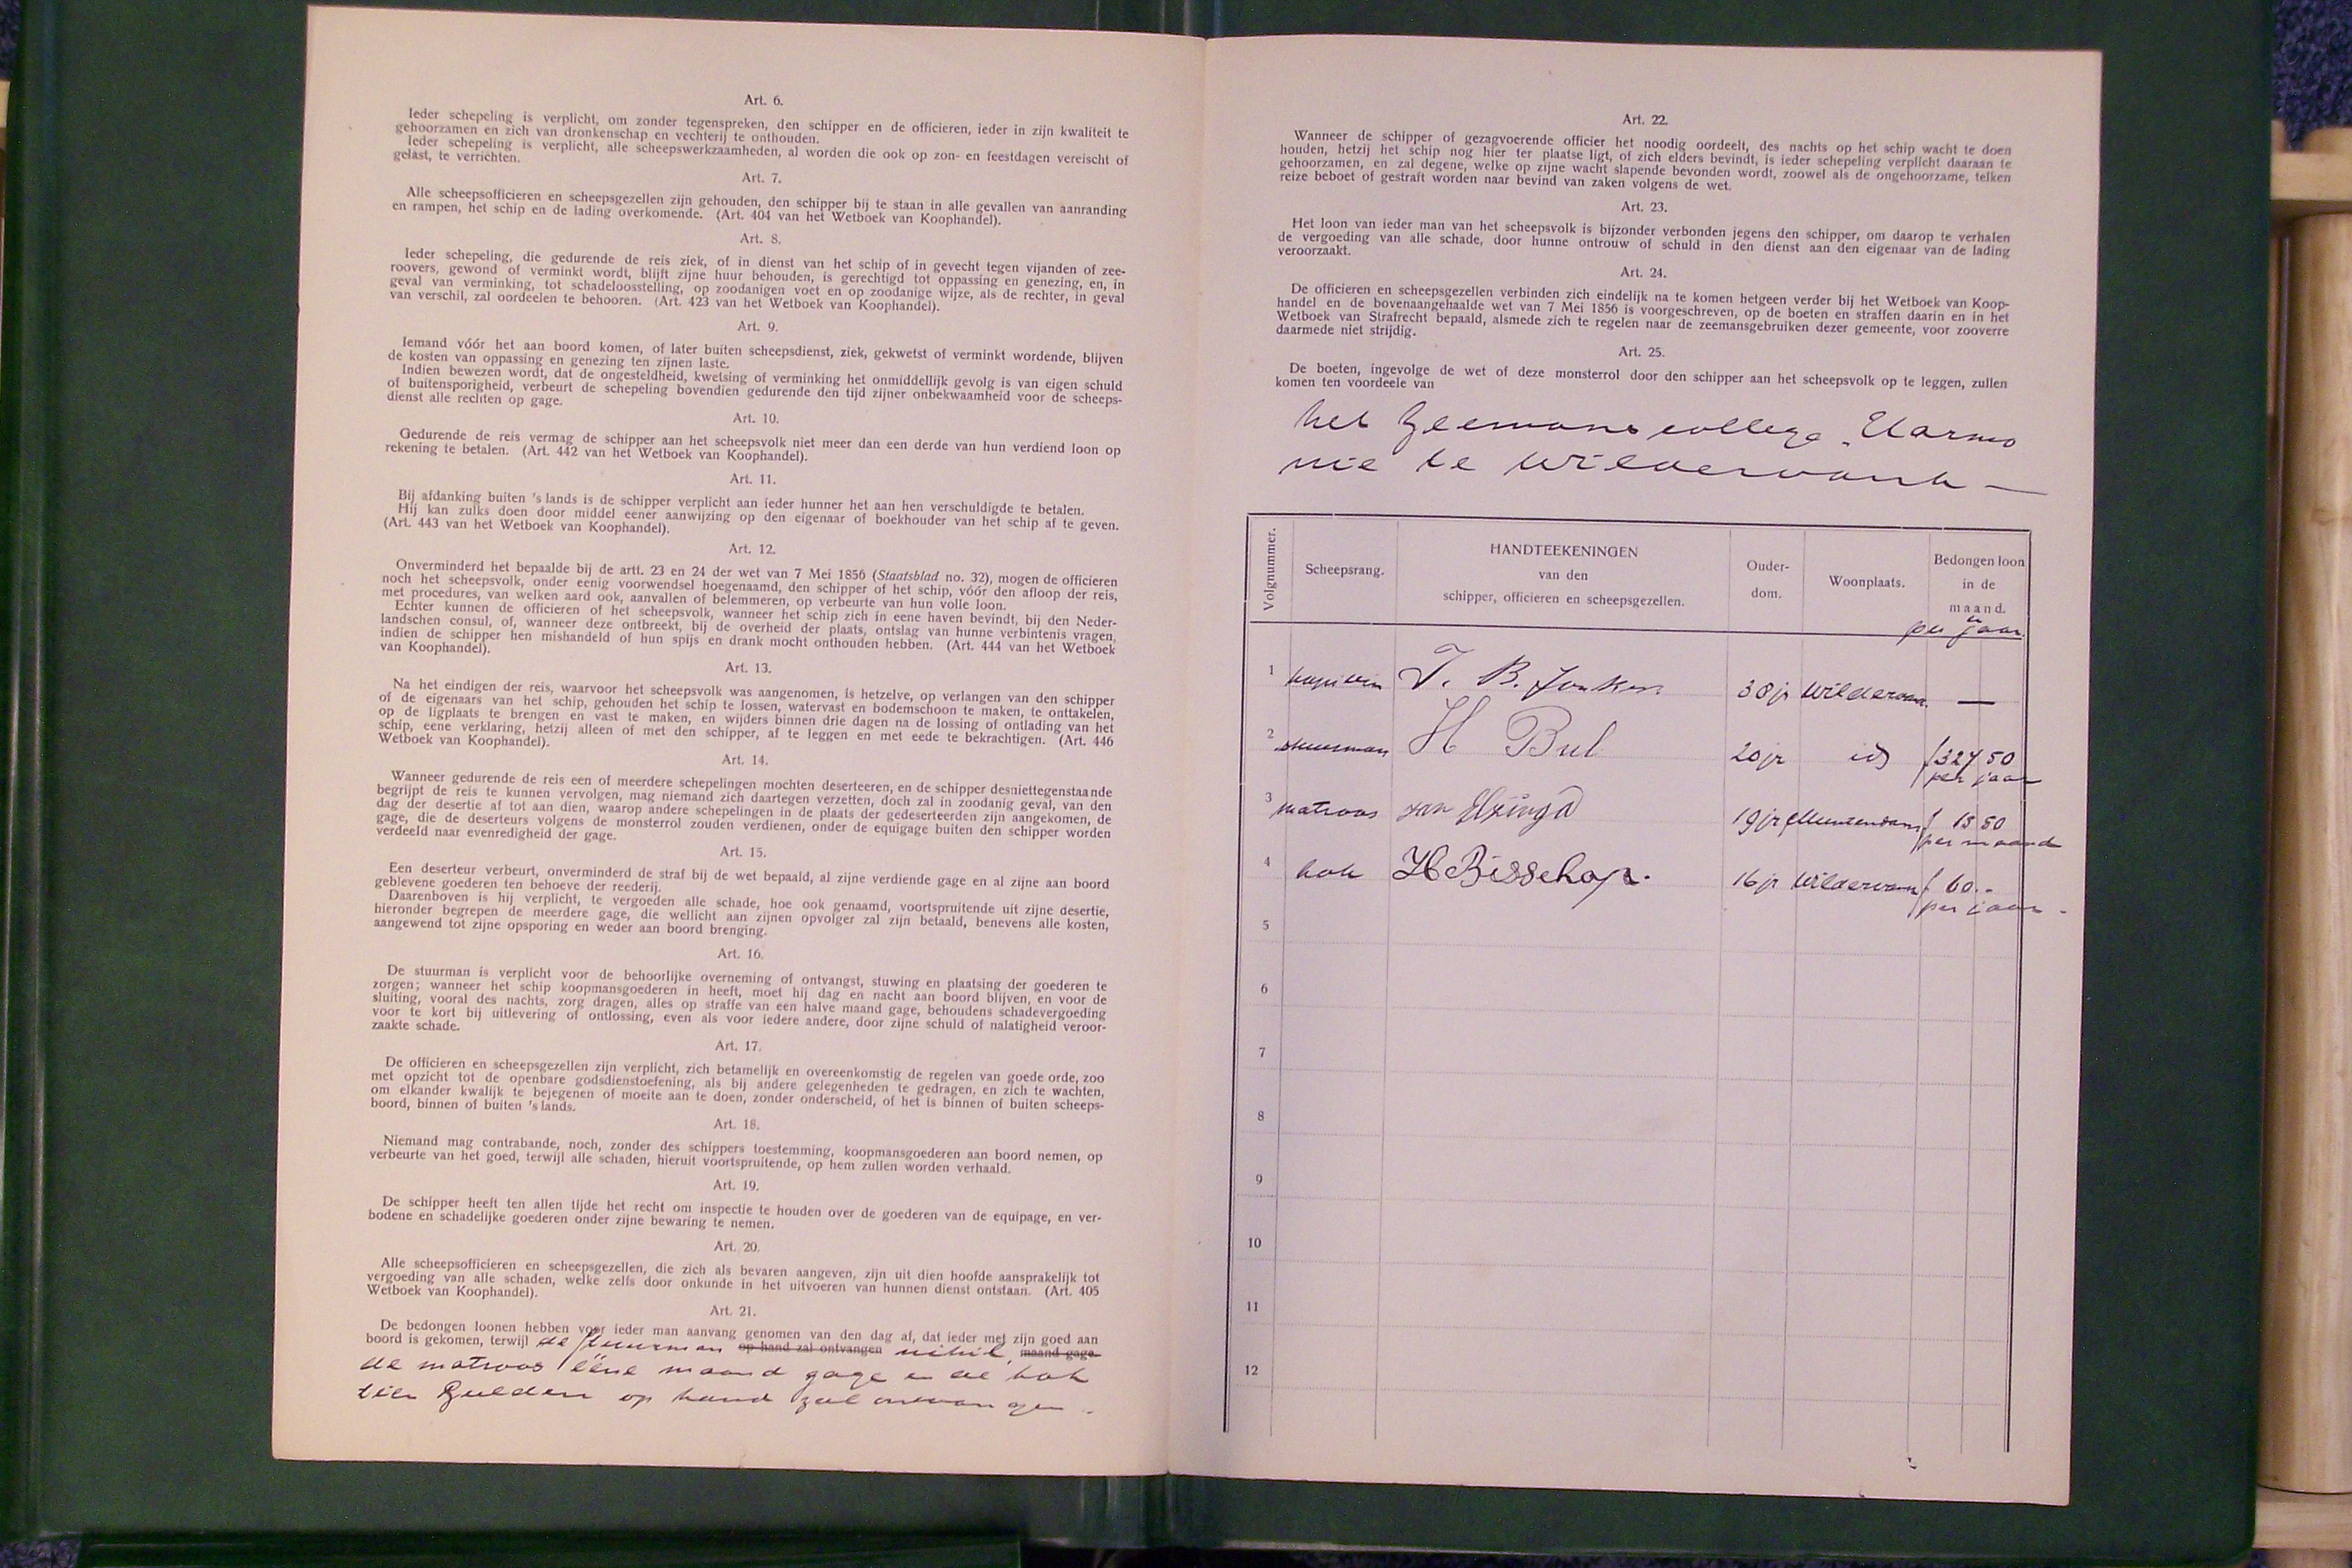 Art. 6.
Ieder schepeling is verplicht, om zonder tegenspreken, den schipper en de officieren, ieder in zijn kwaliteit te
gehoorzamen en zich van dronkenschap en vechterij te onthouden.
Ieder schepeling is verplicht, alle scheepswerkzaamheden, al worden die ook op zon- en feestdagen vereischt of
gelast, te verrichten.
Art. 7.
Alle scheepsofficieren en scheepsgezellen zijn gehouden, den schipper bij te staan in alle gevallen van aanranding
en rampen, het schip en de lading overkomende. (Art. 404 van het Wetboek van Koophandel).
Art. 8.
Ieder schepeling, die gedurende de reis ziek, of in dienst van het schip of in gevecht tegen vijanden of zee-
roovers, gewond of verminkt wordt, blijft zijne huur behouden, is gerechtigd tot oppassing en genezing, en, in
geval van verminking, tot schadeloosstelling, op zoodanigen voet en op zoodanige wijze, als de rechter, in geval
van verschil, zal oordeelen te behooren. (Art. 423 van het Wetboek van Koophandel).
Art. 9.
Iemand vóór het aan boord komen, of later buiten scheepsdienst, ziek, gekwetst of verminkt wordende, blijven
de kosten van oppassing en genezing ten zijnen laste.
Indien bewezen wordt, dat de ongesteldheid, kwetsing of verminking het onmiddellijk gevolg is van eigen schuld
of buitensporigheid, verbeurt de schepeling bovendien gedurende den tijd zijner onbekwaamheid voor de scheeps-
dienst alle rechten op gage.
Art. 10.
Gedurende de reis vermag de schipper aan het scheepsvolk niet meer dan een derde van hun verdiend loon op
rekening te betalen. (Art. 442 van het Wetboek van Koophandel).
Art. 11.
Bij afdanking buiten 's lands is de schipper verplicht aan ieder hunner het aan hen verschuldigde te betalen.
Hij kan zulks doen door middel eener aanwijzing op den eigenaar of boekhouder van het schip af te geven.
(Art. 443 van het Wetboek van Koophandel).
Art. 12.
Onverminderd het bepaalde bij de artt. 23 en 24 der wet van 7 Mei 1856 (Staatsblad no. 32), mogen de officieren
noch het scheepsvolk, onder eenig voorwendsel hoegenaamd, den schipper of het schip, vóór den afloop der reis,
met procedures, van welken aard ook, aanvallen of belemmeren, op verbeurte van hun volle loon.
Echter kunnen de officieren of het scheepsvolk, wanneer het schip zich in eene haven bevindt, bij den Neder-
landschen consul, of, wanneer deze ontbreekt, bij de overheid der plaats, ontslag van hunne verbintenis vragen,
indien de schipper hen mishandeld of hun spijs en drank mocht onthouden hebben. (Art. 444 van het Wetboek
van Koophandel).
Art. 13.
Na het eindigen der reis, waarvoor het scheepsvolk was aangenomen, is hetzelve, op verlangen van den schipper
of de eigenaars van het schip, gehouden het schip te lossen, watervast en bodemschoon te maken, te onttakelen,
op de ligplaats te brengen en vast te maken, en wijders binnen drie dagen na de lossing of ontlading van het
schip, eene verklaring, hetzij alleen of met den schipper, af te leggen en met eede te bekrachtigen. (Art. 446
Wetboek van Koophandel).
Art. 14.
Wanneer gedurende de reis een of meerdere schepelingen mochten deserteeren, en de schipper desniettegenstaande
begrijpt de reis te kunnen vervolgen, mag niemand zich daartegen verzetten, doch zal in zoodanig geval, van den
dag der desertie af tot aan dien, waarop andere schepelingen in de plaats der gedeserteerden zijn aangekomen, de
gage, die de deserteurs volgens de monsterrol zouden verdienen, onder de equigage buiten den schipper worden
verdeeld naar evenredigheid der gage.
Art. 15.
Een deserteur verbeurt, onverminderd de straf bij de wet bepaald, al zijne verdiende gage en al zijne aan boord
geblevene goederen ten behoeve der reederij.
Daarenboven is hij verplicht, te vergoeden alle schade, hoe ook genaamd, voortspruitende uit zijne desertie,
hieronder begrepen de meerdere gage, die wellicht aan zijnen opvolger zal zijn betaald, benevens alle kosten,
aangewend tot zijne opsporing en weder aan boord brenging.
Art. 16.
De stuurman is verplicht voor de behoorlijke overneming of ontvangst, stuwing en plaatsing der goederen te
zorgen; wanneer het schip koopmansgoederen in heeft, moet hij dag en nacht aan boord blijven, en voor de
sluiting, vooral des nachts, zorg dragen, alles op straffe van een halve maand gage, behoudens schadevergoeding
voor te kort bij uitlevering of ontlossing, even als voor iedere andere, door zijne schuld of nalatigheid veroor-
zaakte schade.
Art. 17.
De officieren en scheepsgezellen zijn verplicht, zich betamelijk en overeenkomstig de regelen van goede orde, zoo
met opzicht tot de openbare godsdienstoefening, als bij andere gelegenheden te gedragen, en zich te wachten,
om elkander kwalijk te bejegenen of moeite aan te doen, zonder onderscheid, of het is binnen of buiten scheeps-
boord, binnen of buiten 's lands.
Art. 18.
Niemand mag contrabande, noch, zonder des schippers toestemming, koopmansgoederen aan boord nemen, op
verbeurte van het goed, terwijl alle schaden, hieruit voortspruitende, op hem zullen worden verhaald.
Art. 19.
De schipper heeft ten allen tijde het recht om inspectie te houden over de goederen van de equipage, en ver-
bodene en schadelijke goederen onder zijne bewaring te nemen.
Art. 20.
Alle scheepsofficieren en scheepsgezellen, die zich als bevaren aangeven, zijn uit dien hoofde aansprakelijk tot
vergoeding van alle schaden, welke zelfs door onkunde in het uitvoeren van hunnen dienst ontstaan. (Art. 405
Wetboek van Koophandel).
Art. 21.
De bedongen loonen hebben voor ieder man aanvang genomen van den dag af, dat ieder met zijn goed aan
boord is gekomen, terwijl de stuurman op hand zal ontvangen nihil, maand gage
de matroos ééne maand gage en de kok
tien Gulden op hand zal ontvangen.
Art. 22.
Wanneer de schipper of gezagvoerende officier het noodig oordeelt, des nachts op het schip wacht te doen
houden, hetzij het schip nog hier ter plaatse ligt, of zich elders bevindt, is ieder schepeling verplicht daaraan te
gehoorzamen, en zal degene, welke op zijne wacht slapende bevonden wordt, zoowel als de ongehoorzame, telken
reize beboet of gestraft worden naar bevind van zaken volgens de wet.
Art. 23.
Het loon van ieder man van het scheepsvolk is bijzonder verbonden jegens den schipper, om daarop te verhalen
de vergoeding van alle schade, door hunne ontrouw of schuld in den dienst aan den eigenaar van de lading
veroorzaakt.
Art. 24.
De officieren en scheepsgezellen verbinden zich eindelijk na te komen hetgeen verder bij het Wetboek van Koop-
handel en de bovenaangehaalde wet van 7 Mei 1856 is voorgeschreven, op de boeten en straffen daarin en in het
Wetboek van Strafrecht bepaald, alsmede zich te regelen naar de zeemansgebruiken dezer gemeente, voor zooverre
daarmede niet strijdig.
Art. 25.
De boeten, ingevolge de wet of deze monsterrol door den schipper aan het scheepsvolk op te leggen, zullen
komen ten voordeele van
het Zeemanscollege „Harmo
nie te Wildervank —
Volgnummer.
Scheepsrang.
HANDTEEKENINGEN
van den
schipper, officieren en scheepsgezellen.
Ouder-
dom.
Woonplaats.
Bedongen loon
in de
maand.
en
per jaar.
1 kapitein J. B. Jonker 38 jr Wildervan. —
2 stuurman H Bul 20 jr id f 327 50
per jaar
3 matroos 19 jr Muntendam f 18 50
per maand
4 kok H Bisschop. 16 jr Wildervan f 60.-
per jaar -
5
6
7
8
9
10
11
12